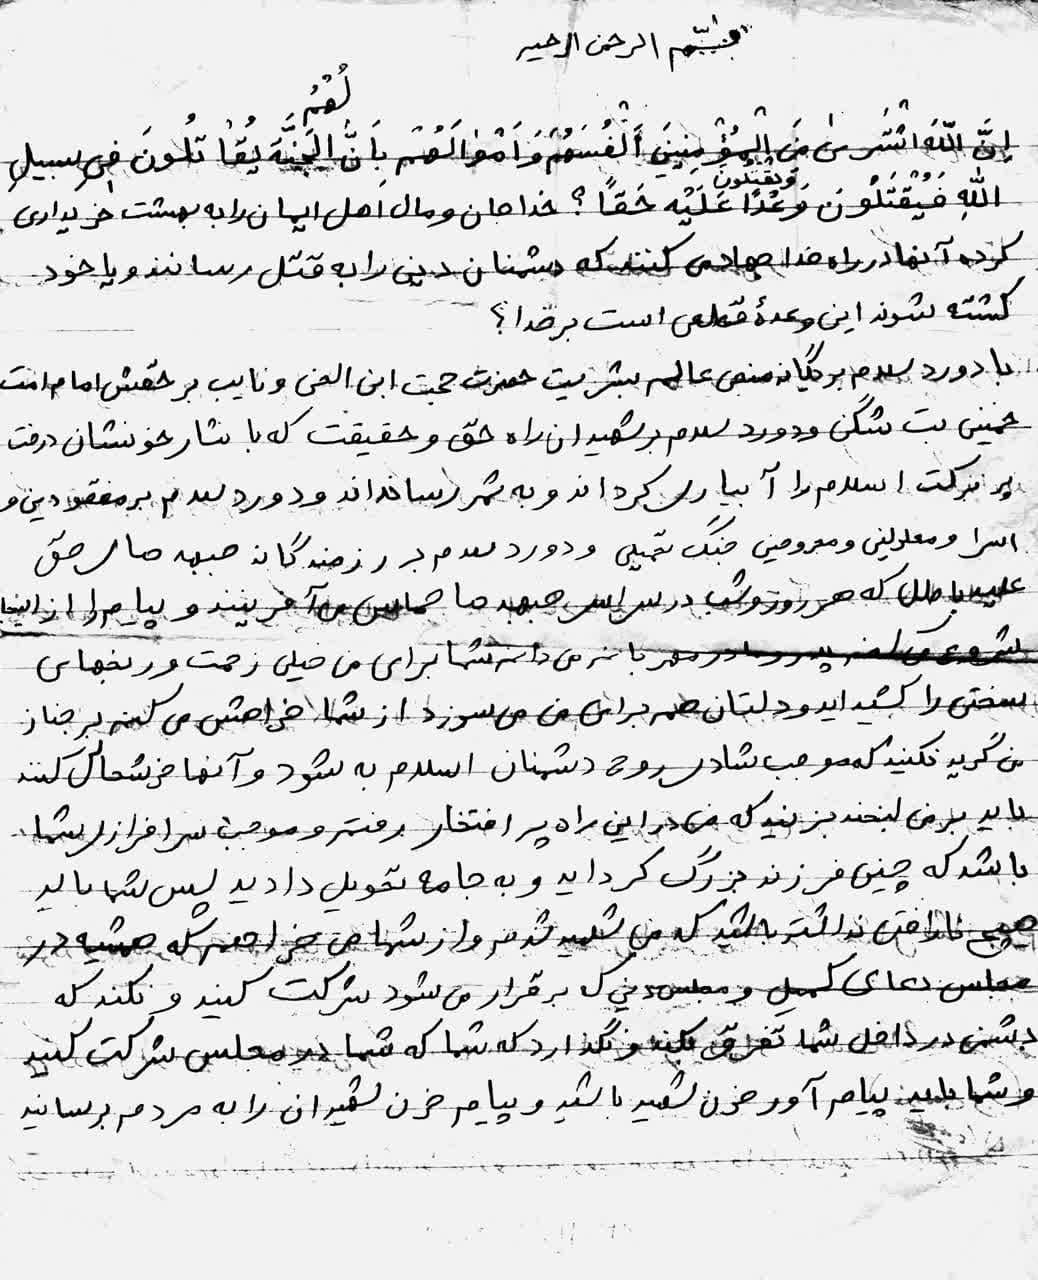 بسم الله الرحمن الرحیم
لَهُمُ
اِنَّ اللّهَ اشْتَرىٰ مِنَ الْمُؤْمِنِینَ اَنْفُسَهُمْ وَ اَمْوٰالَهُمْ بِاَنَّ الْجَنَّةَ یُقٰاتِلُونَ فِی سبیلِ
وَیُقْتَلُونَ
اللهِ فَیُقْتَلُونَ وَعْدًا عَلَیْهِ حَقًا؟ خدا جان و مال اهل ایمان را به بهشت خریداری
کرده آنها در راه خدا جهاد می کنند که دشمنان دین را به قتل رسانند و یا خود
کشته شوند این وعدهٔ قطعی است بر خدا؟
با دورد سلام بر یگانه منجی عالم بشریت حضرت حجت ابن الحسن و نایب بر حقش امام امت
خمینی بت شکن و دورد سلام بر شهیدان راه حق و حقیقت که با نثار خونشان درخت
پر برکت اسلام را آبیاری کرداند و به ثمر رسانداند و دورد سلام بر مفقودین و
اسرا و معلولین و مجروحین جنگ تحمیلی و دورد سلام بر رزمندگان جبهه های حق
علیه باطل که هر روز و شب در سراسر جبهه ها حماس می آفرینند و پیام را از اینجا
شروع می کنم پدر و مادر مهربانم می دانم شما برای من خیلی زحمت و رنجهای
سختی را کشیداید و دلتان همه برای من می سوزد از شما خواهش می کنم بر جناز
من گریه نکنید که موجب شادی روح دشمنان اسلام به شود و آنها خوشحال کنند
باید بر من لبخند بزنید که من در این راه پر افتخار رفتم و موجب سرافرازی شما
باشد که چنین فرزند بزرگ کرداید و به جامعه تحویل دادید پس شما باید
هیچ ناراحتی نداشته باشید که من شهید شدم و از شما می خواهم که همشیه در
مجلس دعای کمیل و مجلس دینی که برقرار می شود شرکت کنید و نکند که
دشمن در داخل شما تفرق بکند و نگذارد که شما که شما در مجلس شرکت کنید
و شما باید پیام آور خون شهید باشید و پیام خون شهیدان را به مردم برسانید